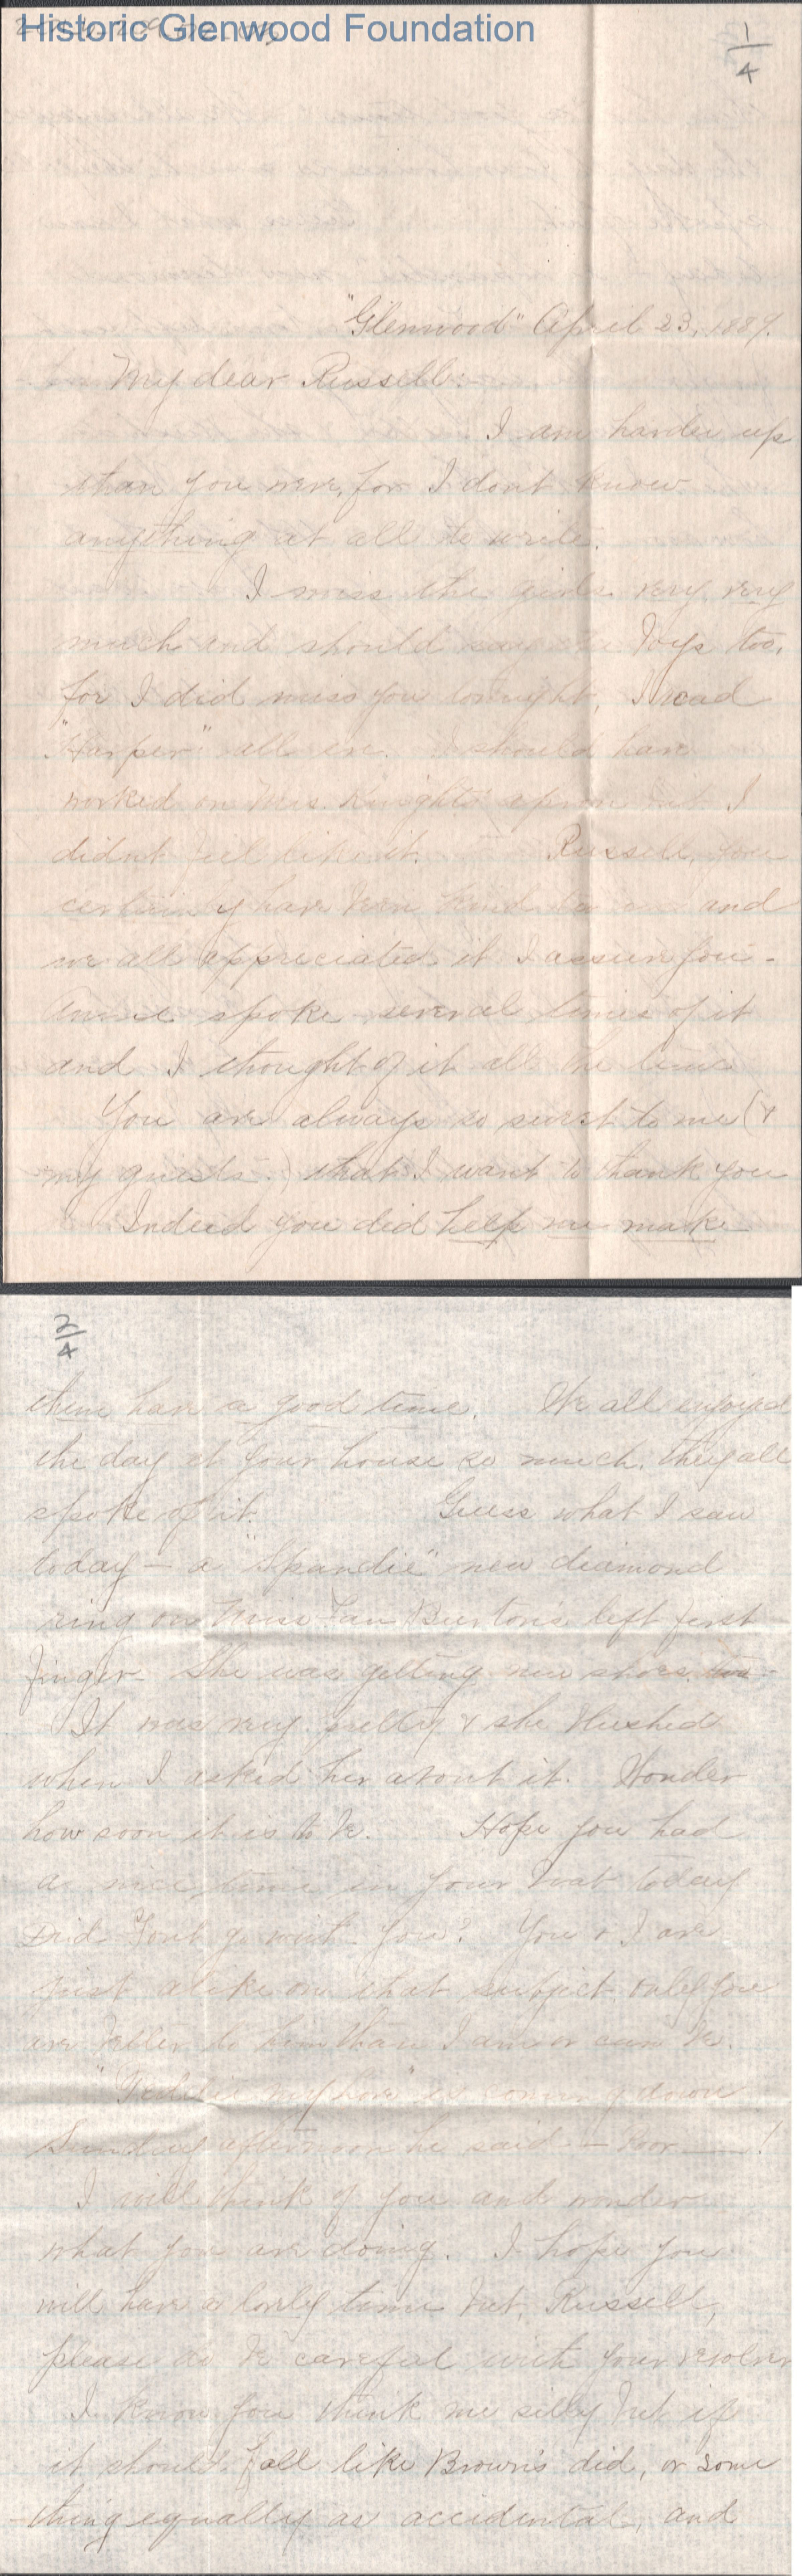 Historic Glenwood Foundation
1/4
"Glenwood" April 23, 1889.
My dear Russell:-
I am harder up
than you were, for I dont know
anything at all to write.
I miss the girls very very
much and should say the boys too,
for I did miss you tonight, I read
"Harper" all eve. I should have
worked on Mrs. Knights apron but I
didnt feel like it. Russell, you
certainly have been kind to me and
we all appreciated it I assure you -
Annie spoke several times of it
and I thought of it all the time
You are always so sweet to me (&
my guests.) that I want to thank you
Indeed you did help me make
2/4
them have a good time. We all enjoyed
the day at your house so much. they all
spoke of it. Guess what I saw
today - a "Spandie" new diamond
ring on Miss Fan Burton's left first
finger - She was getting new shoes too -
It was very pretty & she blushed
when I asked her about it. Wonder
how soon it is to be. Hope you had
a nice time in your boat today
Did go with you? You & I are
just alike on that subject only you
are better to him than I am or can be.
" my love" is coming down
Sunday afternoon he said - Poor —!
I will think of you and wonder
what you are doing. I hope you
will have a lovely time but, Russell,
please do be careful with your revolver
I know you think me silly but if
it should fall like Brown's did, or some
thing equally as accidental, and